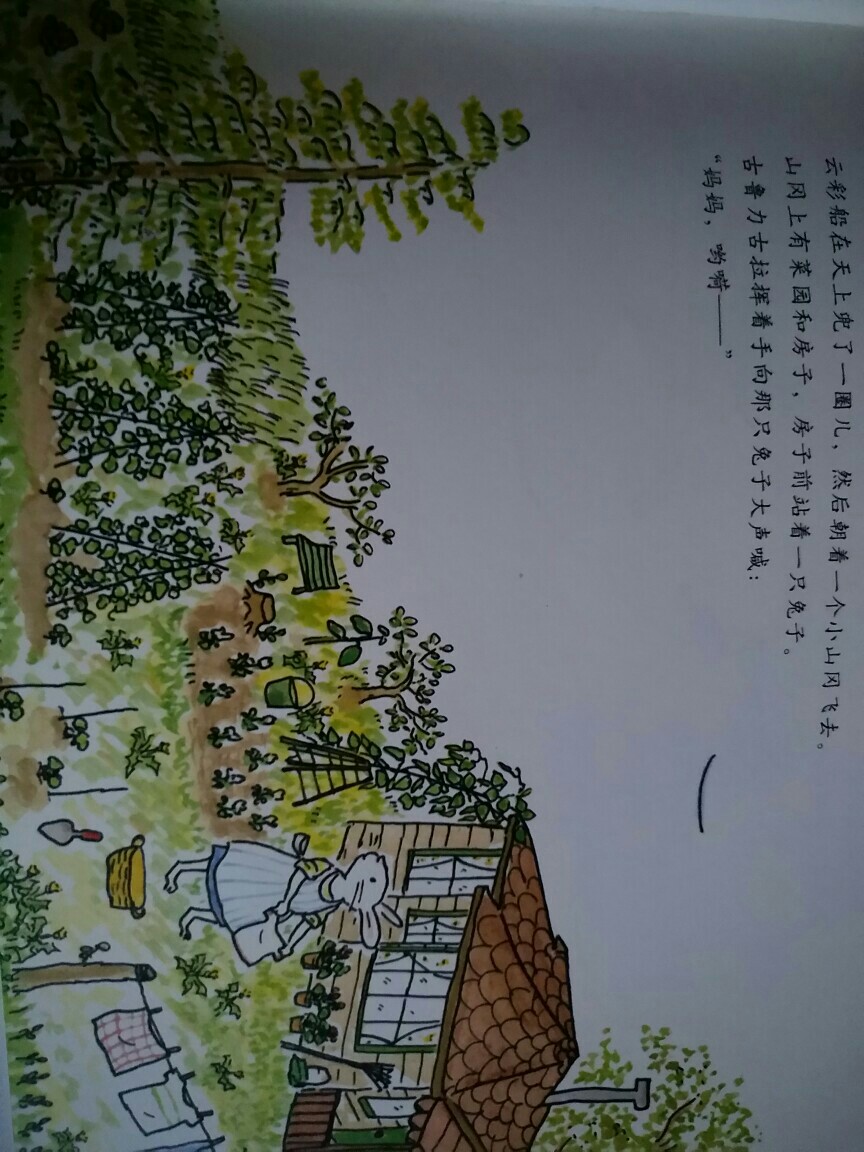 云彩船在天上兜了一圈儿，然后朝着一个小山冈飞去。
山冈上有菜园和房子，房子前站着一只兔子。
古鲁力古拉挥着手向那只兔子大声喊：
“妈妈，哟嗬——”